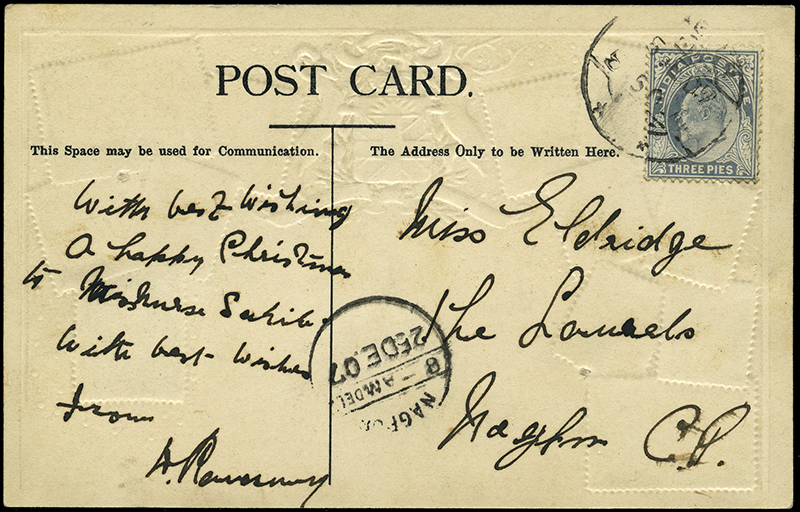 POST CARD.
This Space may be used for Communication.
The Address Only to be Written Here.
INDIA POSTAGE
THREE PIES
With best Wishing
a happy Christmas
to Miss Nurse Sahib
With best Wishes
from
Miss Eldridge
The Laurels
Nagpur C.P.
NAGPUR
8-AM DEL
25 DE. 07